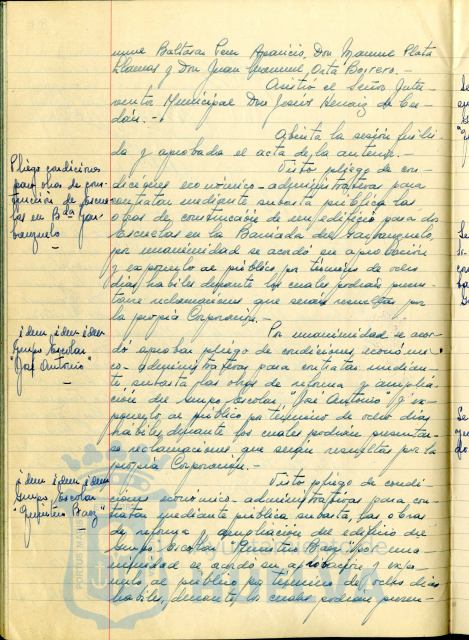 Baltasar Perea Aparicio, Don Manuel Plata
Llamas y Don Juan Manuel Orta Borrero.-
Asistió el Señor Inter-
ventor Municipal Don Jesús de
.-
Abierta la sesión fué lei-
da y aprobada el acta de la anterior.-
Pliego condiciones
para obras de cons-
trucción de escue-
las en Bda Gar-
banzuelo
-
Visto pliego de con-
diciones económico-administrativas para
contratar mediante subasta pública las
obras de construcción de un edificio para dos
Escuelas en la Barriada del Garbanzuelo,
por unanimidad se acordó su aprobación
y exponerlo al público por término de ocho
días hábiles durante los cuales podrán presen-
tarse reclamaciones que serán resueltas por
la propia Corporación.-
idem, idem idem
Grupo Escolar
"José Antonio"
-
Por unanimidad se acor-
dó aprobar pliego de condiciones económi-
co-administrativas para contratar median-
te subasta las obras de reforma y amplia-
ción del Grupo Escolar "José Antonio" y ex-
ponerlo al público por término de ocho días
hábiles, durante los cuales podrán presentar-
se reclamaciones que serán resueltas por la
propia Corporación.-
idem idem idem
Grupo Escolar
"Báez"
-
Visto pliego de condi-
ciones económico-administrativas para con-
tratar mediante pública subasta, las obras
de reforma y ampliación del edificio del
Grupo Escolar "Báez" por una-
nimidad se acordó su aprobación y expo-
nerlo al público por término de ocho días
hábiles, durante los cuales podrán presen-